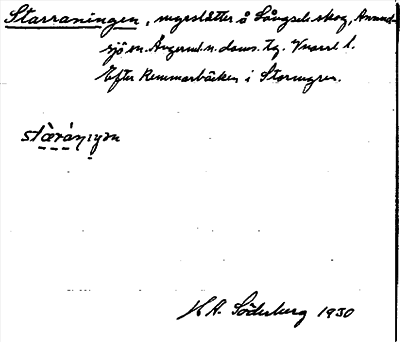 Starraningen, myrslåtter å Långsels skog, Anund-
sjö sn. Ångerml. n. doms. tg.
Efter Remmarbäcken i Stormyren.
K A. Söderberg 1930